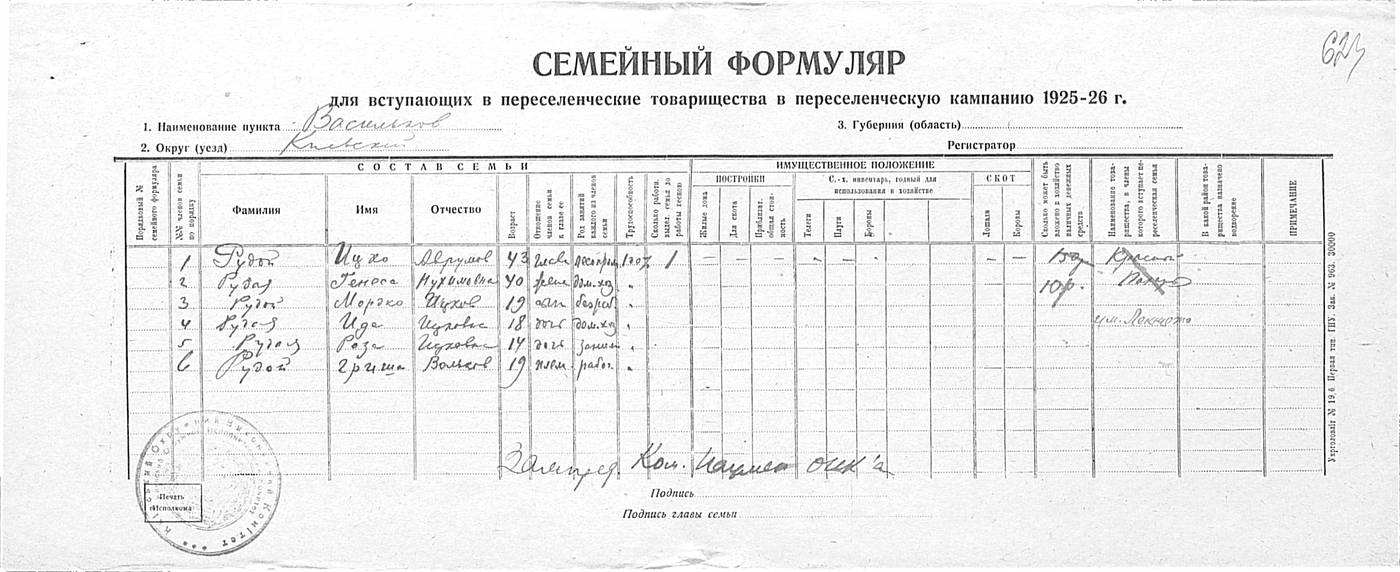 623
СЕМЕЙНЫЙ ФОРМУЛЯР
для вступающих в переселенческие товарищества в переселенческую кампанию 1925-26 г.
1. Наименование пункта Васильков
3. Губерния (область)
2. Округ (уезд) Киевский
Регистратор
Порядковый № семейного формуляра
№№ членов семьи по порядку
СОСТАВ СЕМЬИ
Фамилия
Имя
Отчество
Возраст
Отношение членов семьи к главе ее
Род занятий каждого из членов семьи
Трудоспособность
Сколько работн. выдел. семья до работы весною
ИМУЩЕСТВЕННОЕ ПОЛОЖЕНИЕ
ПОСТРОЙКИ
Жилые дома
Для скота
Приблизит. общая стоимость
С.-х. инвентарь, годный для использования в хозяйстве
Телеги
Плуги
Бороны
СКОТ
Лошади
Коровы
Сколько может быть вложено в хозяйство наличных денежных средств
Наименование товарищества, в члены которого вступает переселенческая семья
В какой район товарищества назначено водворение
ПРИМЕЧАНИЕ
1 Рудой Ицко Аврумов 43 глава 100% 1 – – – – – – – –
2 Рудая Геноса Нухимовна 40 жена дом.хоз " 10р.
3 Рудой Мордко Ицков 19 сын безраб "
4 Рудая Ида Ицковна 18 дочь дом.хоз "
5 Рудая Роза Ицковна 14 дочь "
6 Рудой Гриша Вольков 19 плем. работ "
Зампред. Ком. ОИК'а
Печать Исполкома
Подпись
Подпись главы семьи
Укрголовліт № 19.6. Первая тип. ГИУ. Зак. № 963. 30000